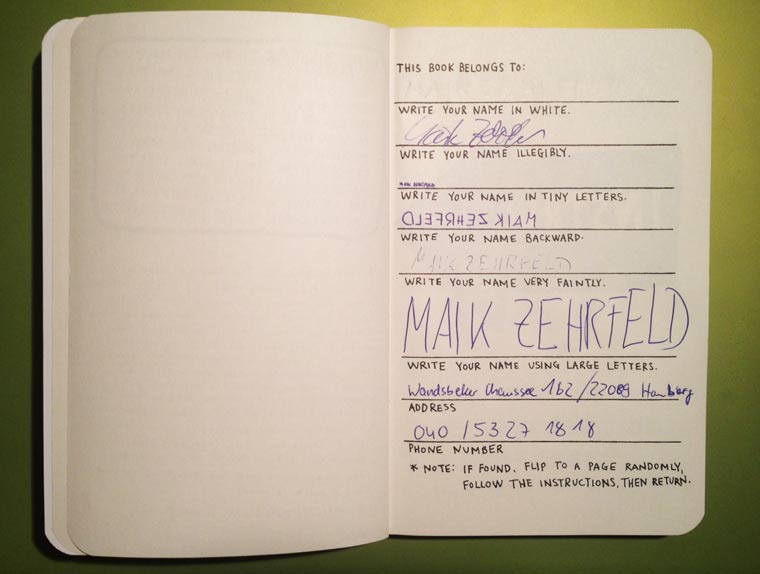 THIS BOOK BELONGS TO:
WRITE YOUR NAME IN WHITE.
WRITE YOUR NAME ILLEGIBLY.
MAIK ZEHRFELD
WRITE YOUR NAME IN TINY LETTERS.
DLEFRHEZ KIAM
WRITE YOUR NAME BACKWARD.
MAIK ZEHRFELD
WRITE YOUR NAME VERY FAINTLY.
MAIK ZEHRFELD
WRITE YOUR NAME USING LARGE LETTERS.
Wandsbeker Chaussee 162 / 22089 Hamburg
ADDRESS
040 / 53 27 18 18
PHONE NUMBER
* NOTE: IF FOUND, FLIP TO A PAGE RANDOMLY,
FOLLOW THE INSTRUCTIONS, THEN RETURN.